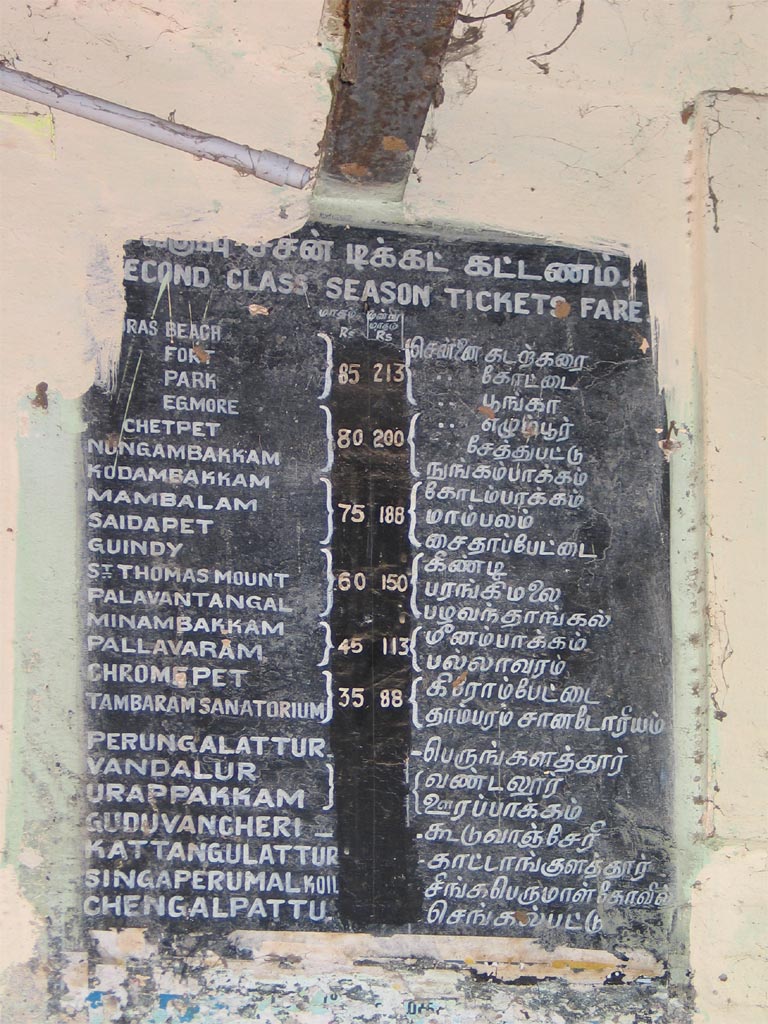 சீசன் டிக்கட் கட்டணம்.
ECOND CLASS SEASON TICKETS FARE
மாதம் மூன்று மாதம்
Rs Rs
RAS BEACH சென்னை கடற்கரை
FORT 85 213 " கோட்டை
PARK " பூங்கா
EGMORE " எழும்பூர்
CHETPET 80 200 சேத்துபட்டு
NUNGAMBAKKAM நுங்கம்பாக்கம்
KODAMBAKKAM கோடம்பாக்கம்
MAMBALAM 75 188 மாம்பலம்
SAIDAPET சைதாப்பேட்டை
GUINDY கிண்டி
ST THOMAS MOUNT 60 150 பரங்கிமலை
PALAVANTANGAL பழவந்தாங்கல்
MINAMBAKKAM 45 113 மீனம்பாக்கம்
PALLAVARAM பல்லாவரம்
CHROMEPET 35 88 கிரோம்பேட்டை
TAMBARAM SANATORIUM தாம்பரம் சானடோரியம்
PERUNGALATTUR - பெருங்களத்தூர்
VANDALUR வண்டலூர்
URAPPAKKAM ஊரப்பாக்கம்
GUDUVANCHERI - கூடுவாஞ்சேரி
KATTANGULATTUR - காட்டாங்குளத்தூர்
SINGAPERUMAL KOIL சிங்கபெருமாள் கோவில்
CHENGALPATTU. - செங்கல்பட்டு